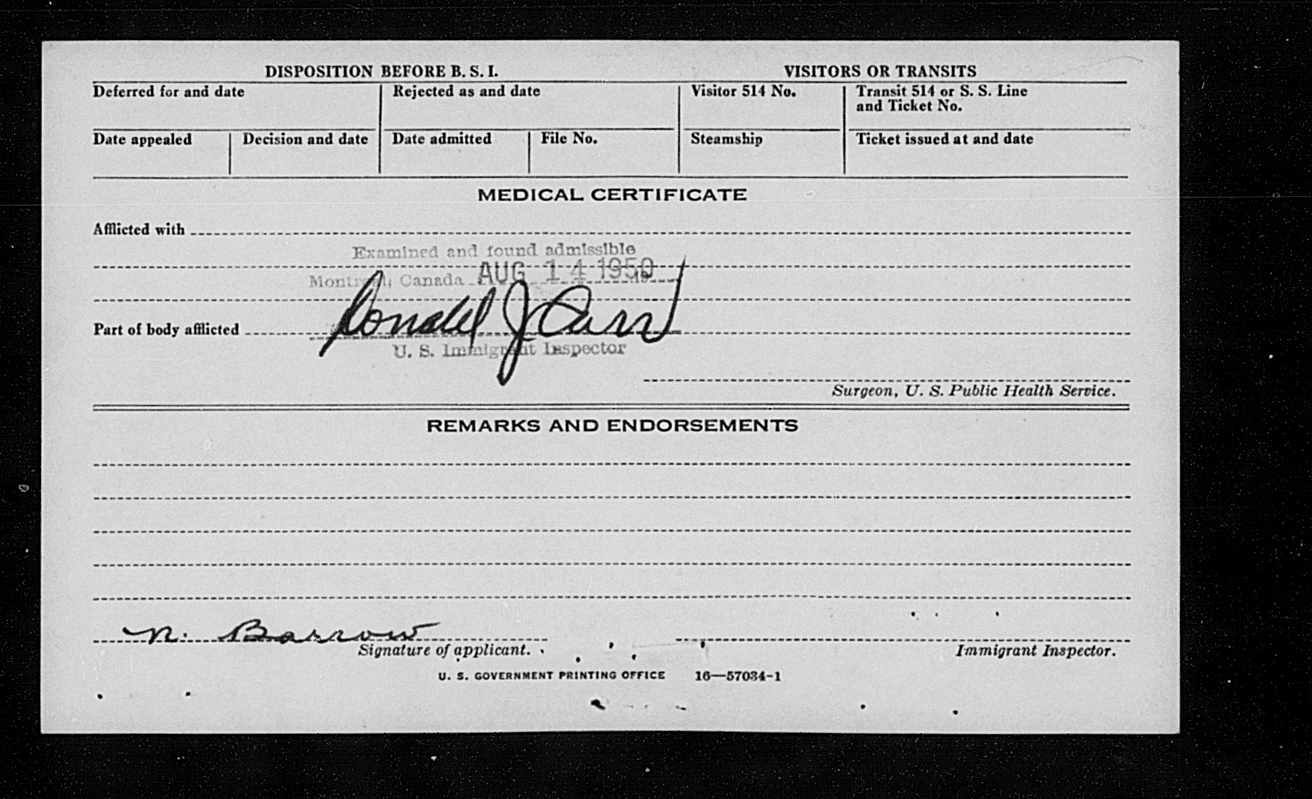 DISPOSITION BEFORE B. S. I.
VISITORS OR TRANSITS
Deferred for and date
Rejected as and date
Visitor 514 No.
Transit 514 or S. S. Line
and Ticket No.
Date appealed
Decision and date
Date admitted
File No.
Steamship
Ticket issued at and date
MEDICAL CERTIFICATE
Afflicted with
Examined and found admissible
Montreal, Canada AUG 14 1950
Part of body afflicted
Donald J Carr
U. S. Immigrant Inspector
Surgeon, U. S. Public Health Service.
REMARKS AND ENDORSEMENTS
N. Barrow
Signature of applicant.
Immigrant Inspector.
U. S. GOVERNMENT PRINTING OFFICE 16—57034-1